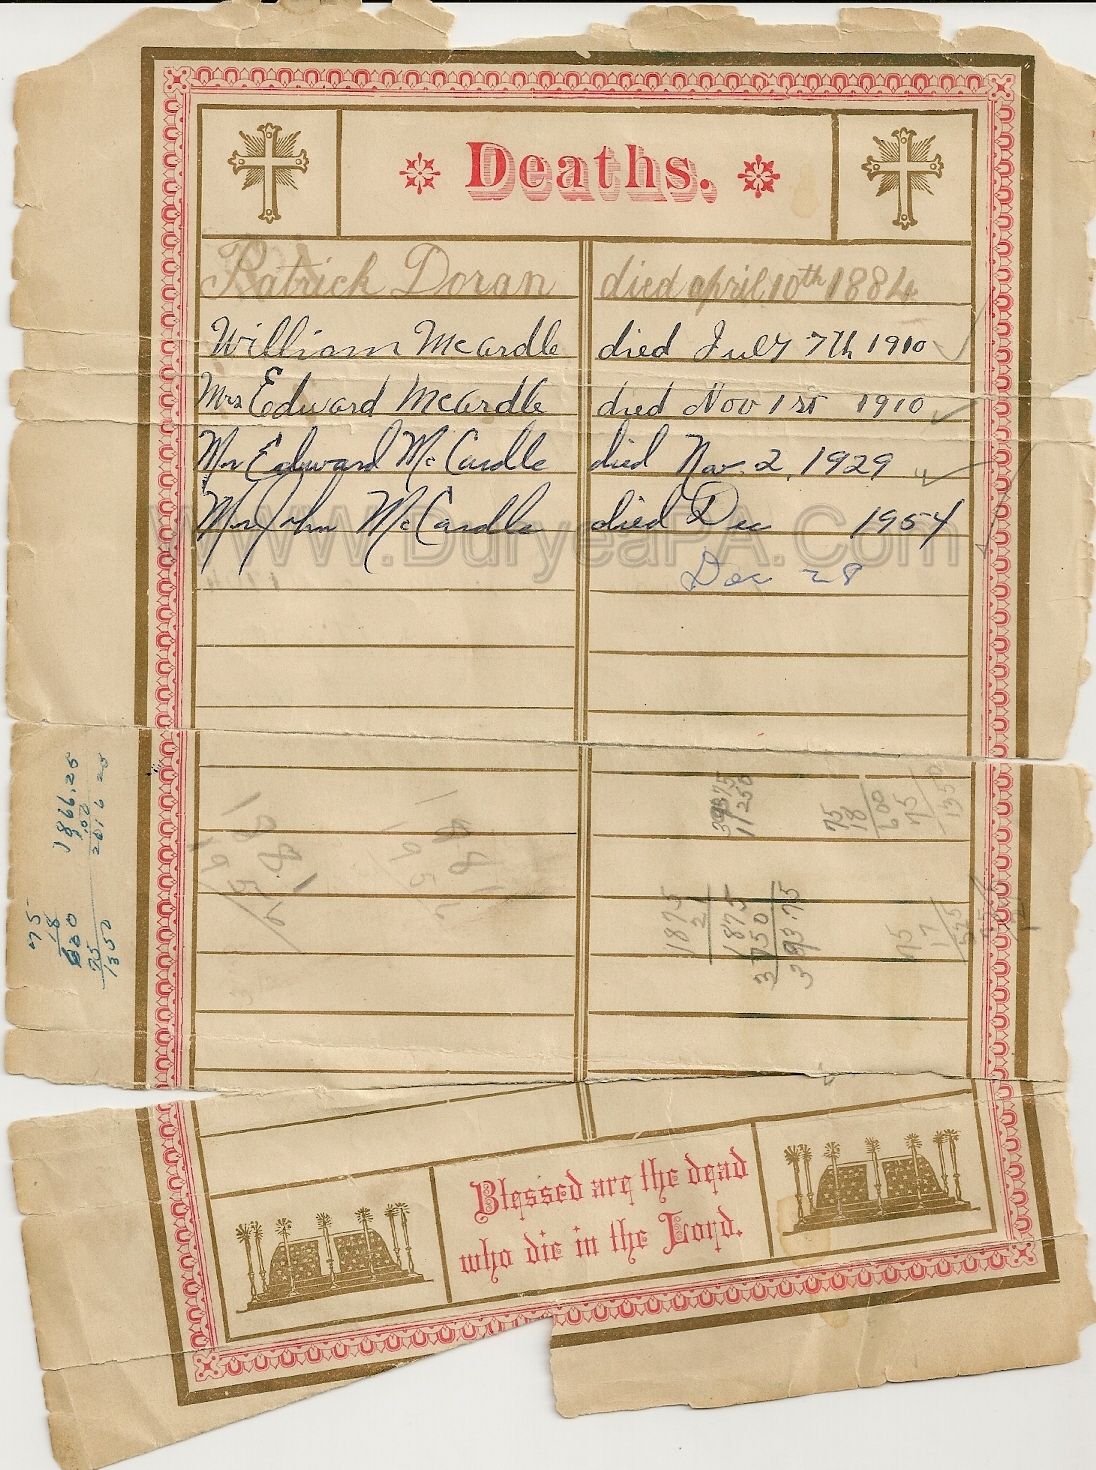 Deaths.
Patrick Doran died april 10th 1884
William McArdle died July 7th 1910
Mrs Edward McArdle died Nov 1st 1910
Mr Edward McCardle died Nov. 2, 1929
Mr John McCardle died Dec 1954
WWW.DuryeaPA.Com
Dec 28
1866.25
2016 25
75
18
600
75
1350
39375
11250
75
18
600
75
1350
1875
21
1875
3750
39375
75
17
525
Blessed are the dead
who die in the Lord.